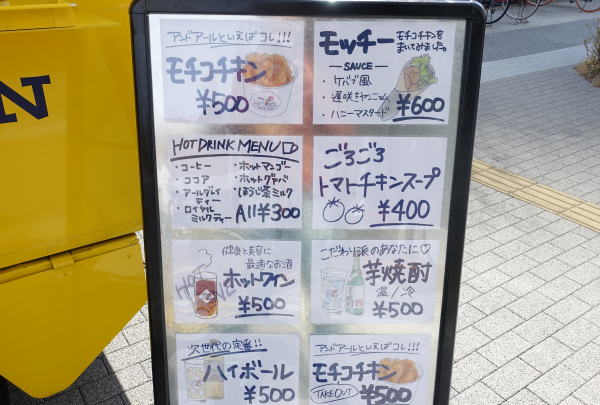 N
アンドアールといえばコレ!!!
モチコチキン
¥500
モッチー
モチコチキンを
まいてみました。
SAUCE
・ケバブ風
・遅咲きヤンニョム
・ハニーマスタード
¥600
HOT DRINK MENU
・コーヒー
・ココア
・アールグレイ
ティー
・ロイヤル
ミルクティー
・ホットマンゴー
・ホットグァバ
・ほうじ茶ミルク
All¥300
ごろごろ
トマトチキンスープ
¥400
健康と美容に
最適なお酒
ホットワイン
¥500
こだわり派のあなたに♡
芋焼酎
温/冷
¥500
次世代の定番!!
ハイボール
¥500
アンドアールといえばコレ!!!
モチコチキン
TAKE OUT
¥500